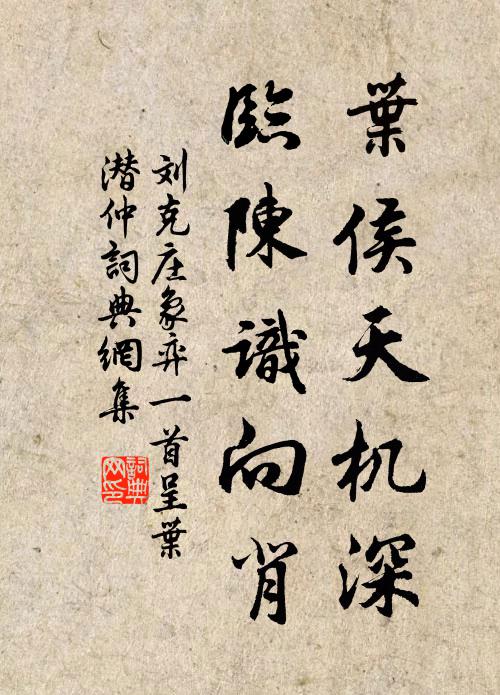 葉侯天机深
臨陳識向背
刘克庄象弈一首呈葉
潜仲詞典網集
詞典
网印